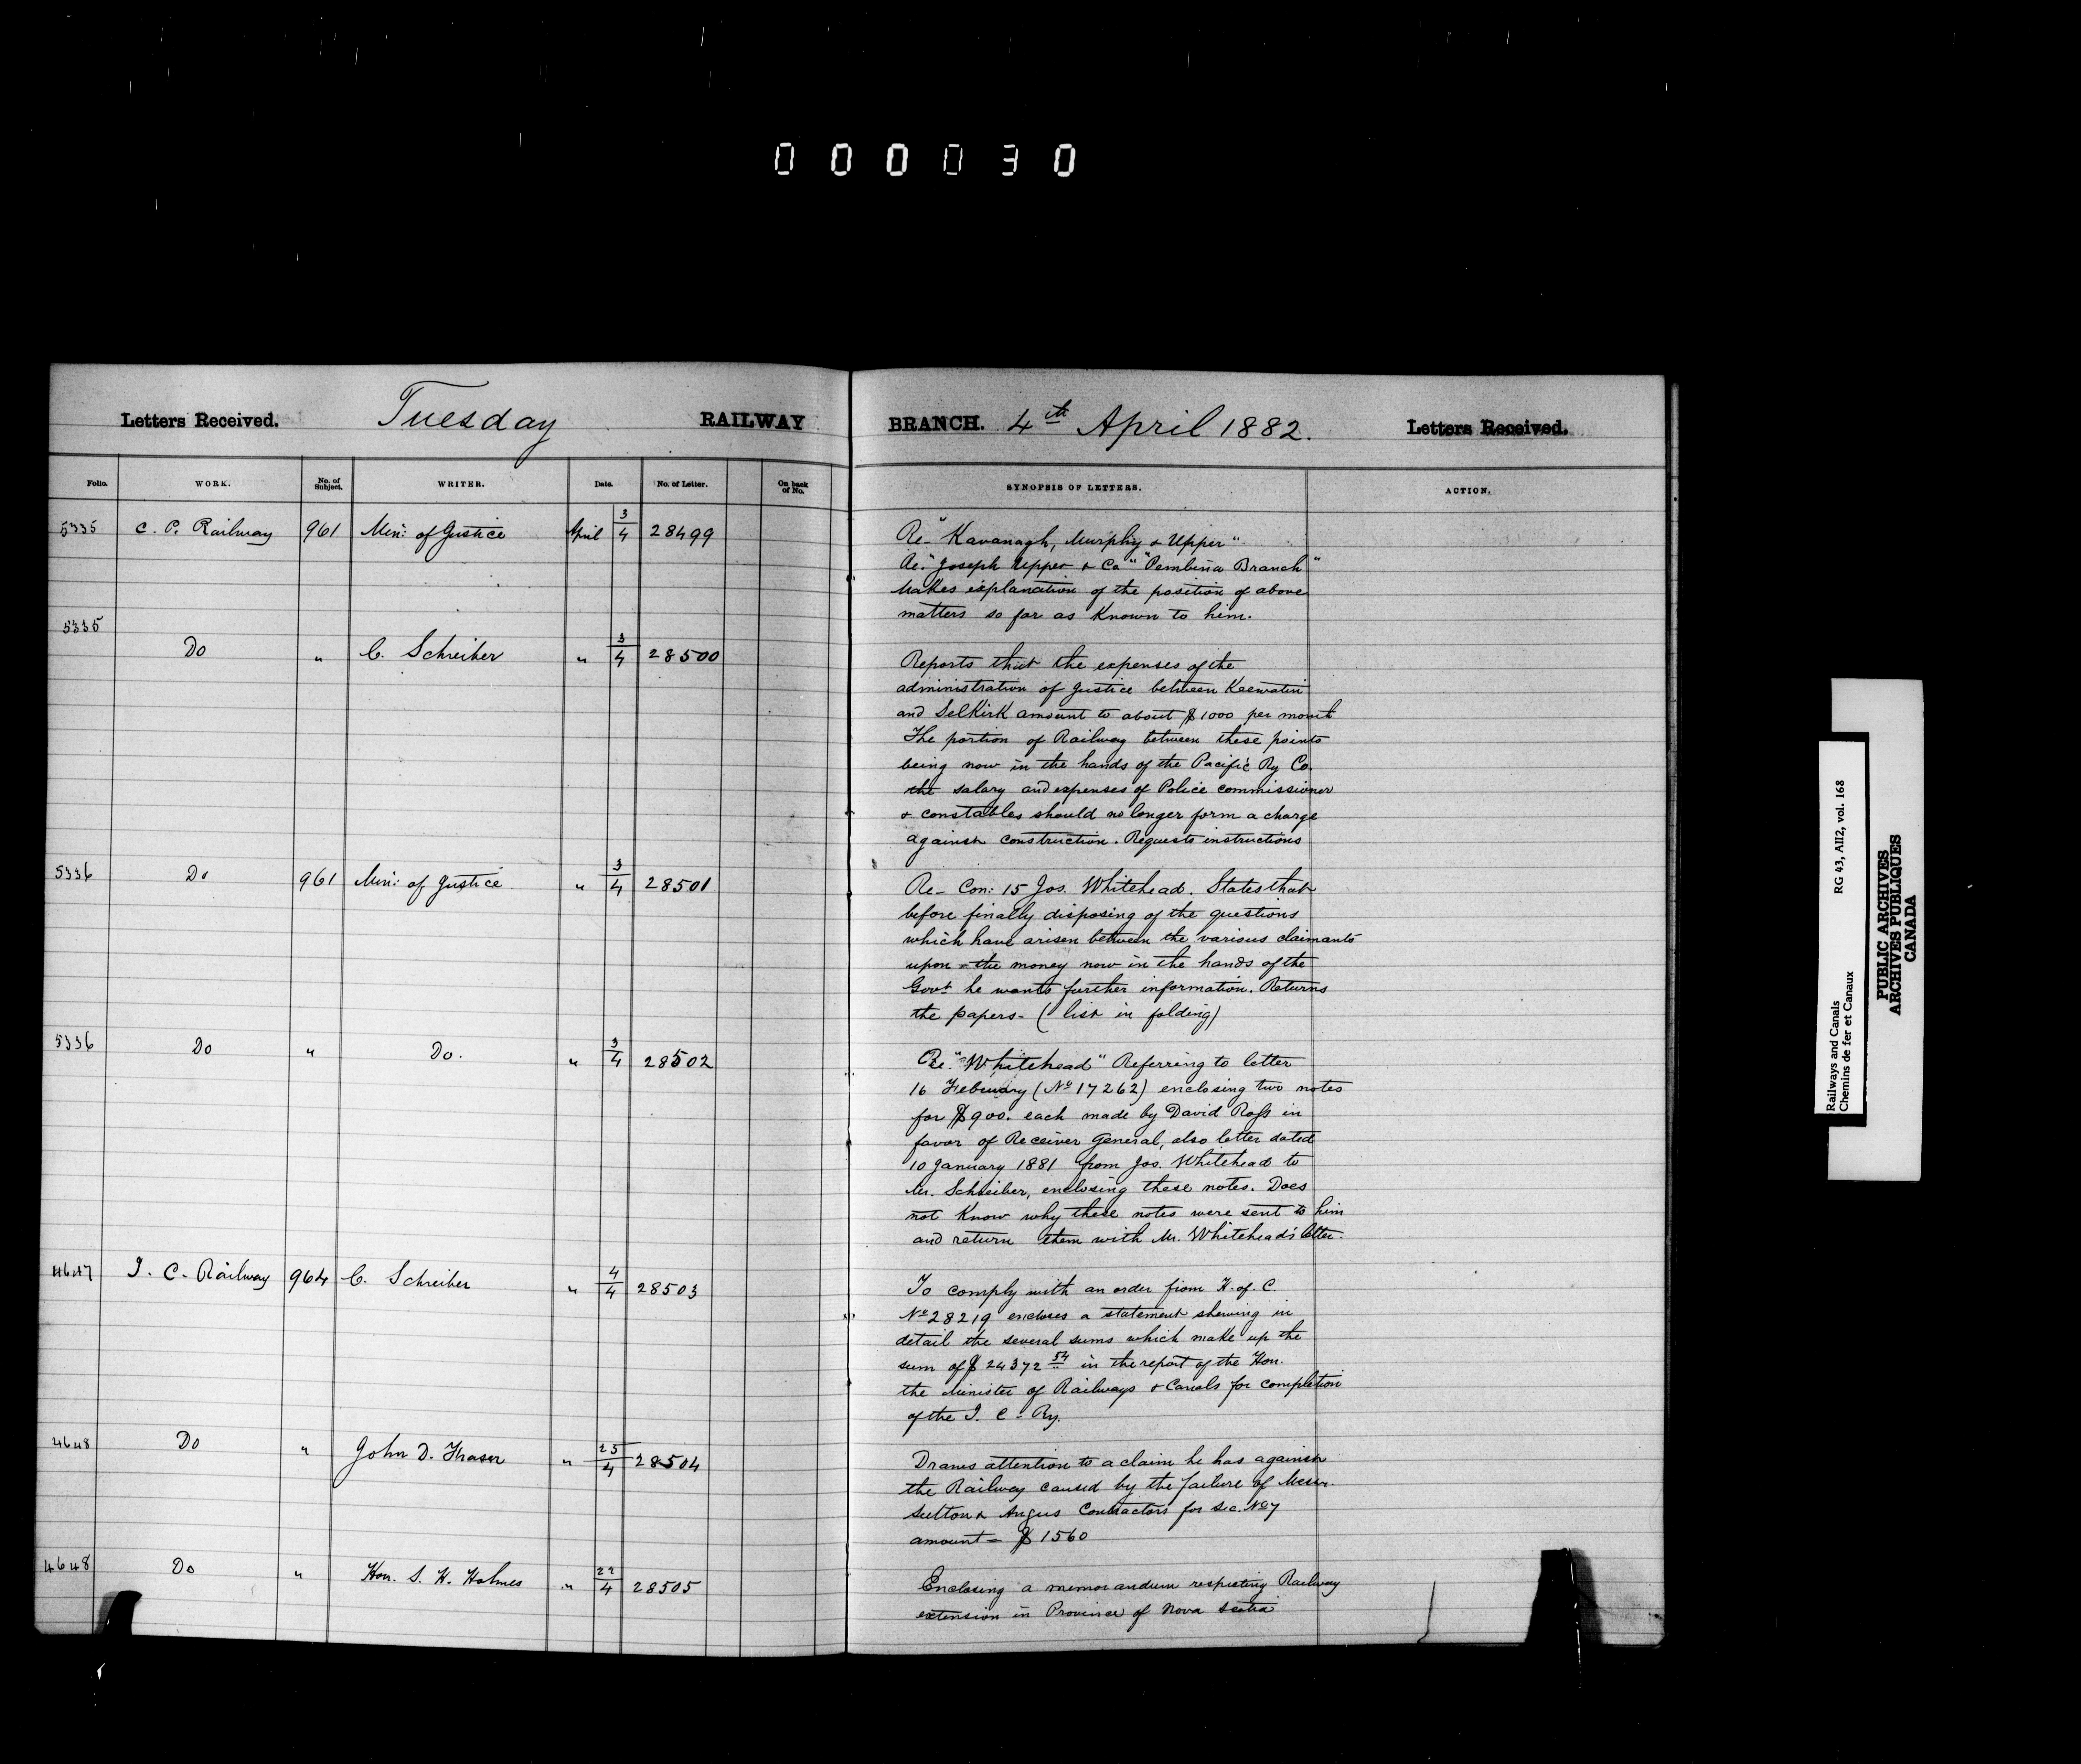 000030
Letters Received. Tuesday RAILWAY
BRANCH. 4th April 1882. Letters Received.
Folio. WORK. No. of Subject. WRITER. Date. No. of Letter. On back of No.
SYNOPSIS OF LETTERS. ACTION.
5335 C. P. Railway 961 Min: of Justice April 3/4 28499
Re- "Kavanagh, Murphy & Upper"
Re. "Joseph Upper & Co" "Pembina Branch"
Makes explanation of the position of above
matters so far as Known to him.
5335 Do " C. Schreiber " 3/4 28500
Reports that the expenses of the
administration of Justice between Keewatin
and Selkirk amount to about $1000 per month
The portion of Railway between these points
being now in the hands of the Pacific Ry Co.
the salary and expenses of Police commissioner
& constables should no longer form a charge
against construction. Requests instructions
5336 Do 961 Min: of Justice " 3/4 28501
Re- Con: 15 Jos. Whitehead. States that
before finally disposing of the questions
which have arisen between the various claimants
upon the money now in the hands of the
Govt he wants further information. Returns
the papers- (list in folding)
5336 Do " Do. " 3/4 28502
Re. "Whitehead" Referring to letter
16 February (No 17262) enclosing two notes
for $900. each made by David Ross in
favor of Receiver General, also letter dated
10 January 1881 from Jos. Whitehead to
Mr. Schreiber, enclosing these notes. Does
not Know why these notes were sent to him
and return them with Mr. Whitehead's letter.
4647 I. C. Railway 964 C. Schreiber " 4/4 28503
To comply with an order from H. of. C.
No 28219 encloses a statement shewing in
detail the several sums which make up the
sum of $ 24372 54 in the report of the Hon.
the Minister of Railways & Canals for completion
of the I. C. Ry.
4648 Do " John D. Fraser " 25/4 28504
Draws attention to a claim he has against
the Railway caused by the failure of Messr.
Sutton & Angus Contractors for Sec. No 7
amount = $ 1560
4648 Do " Hon. S. H. Holmes " 22/4 28505
Enclosing a memorandum respecting Railway
extension in Province of Nova Scotia
Railways and Canals RG 43, AII2, vol. 168
Chemins de fer et Canaux
PUBLIC ARCHIVES
ARCHIVES PUBLIQUES
CANADA